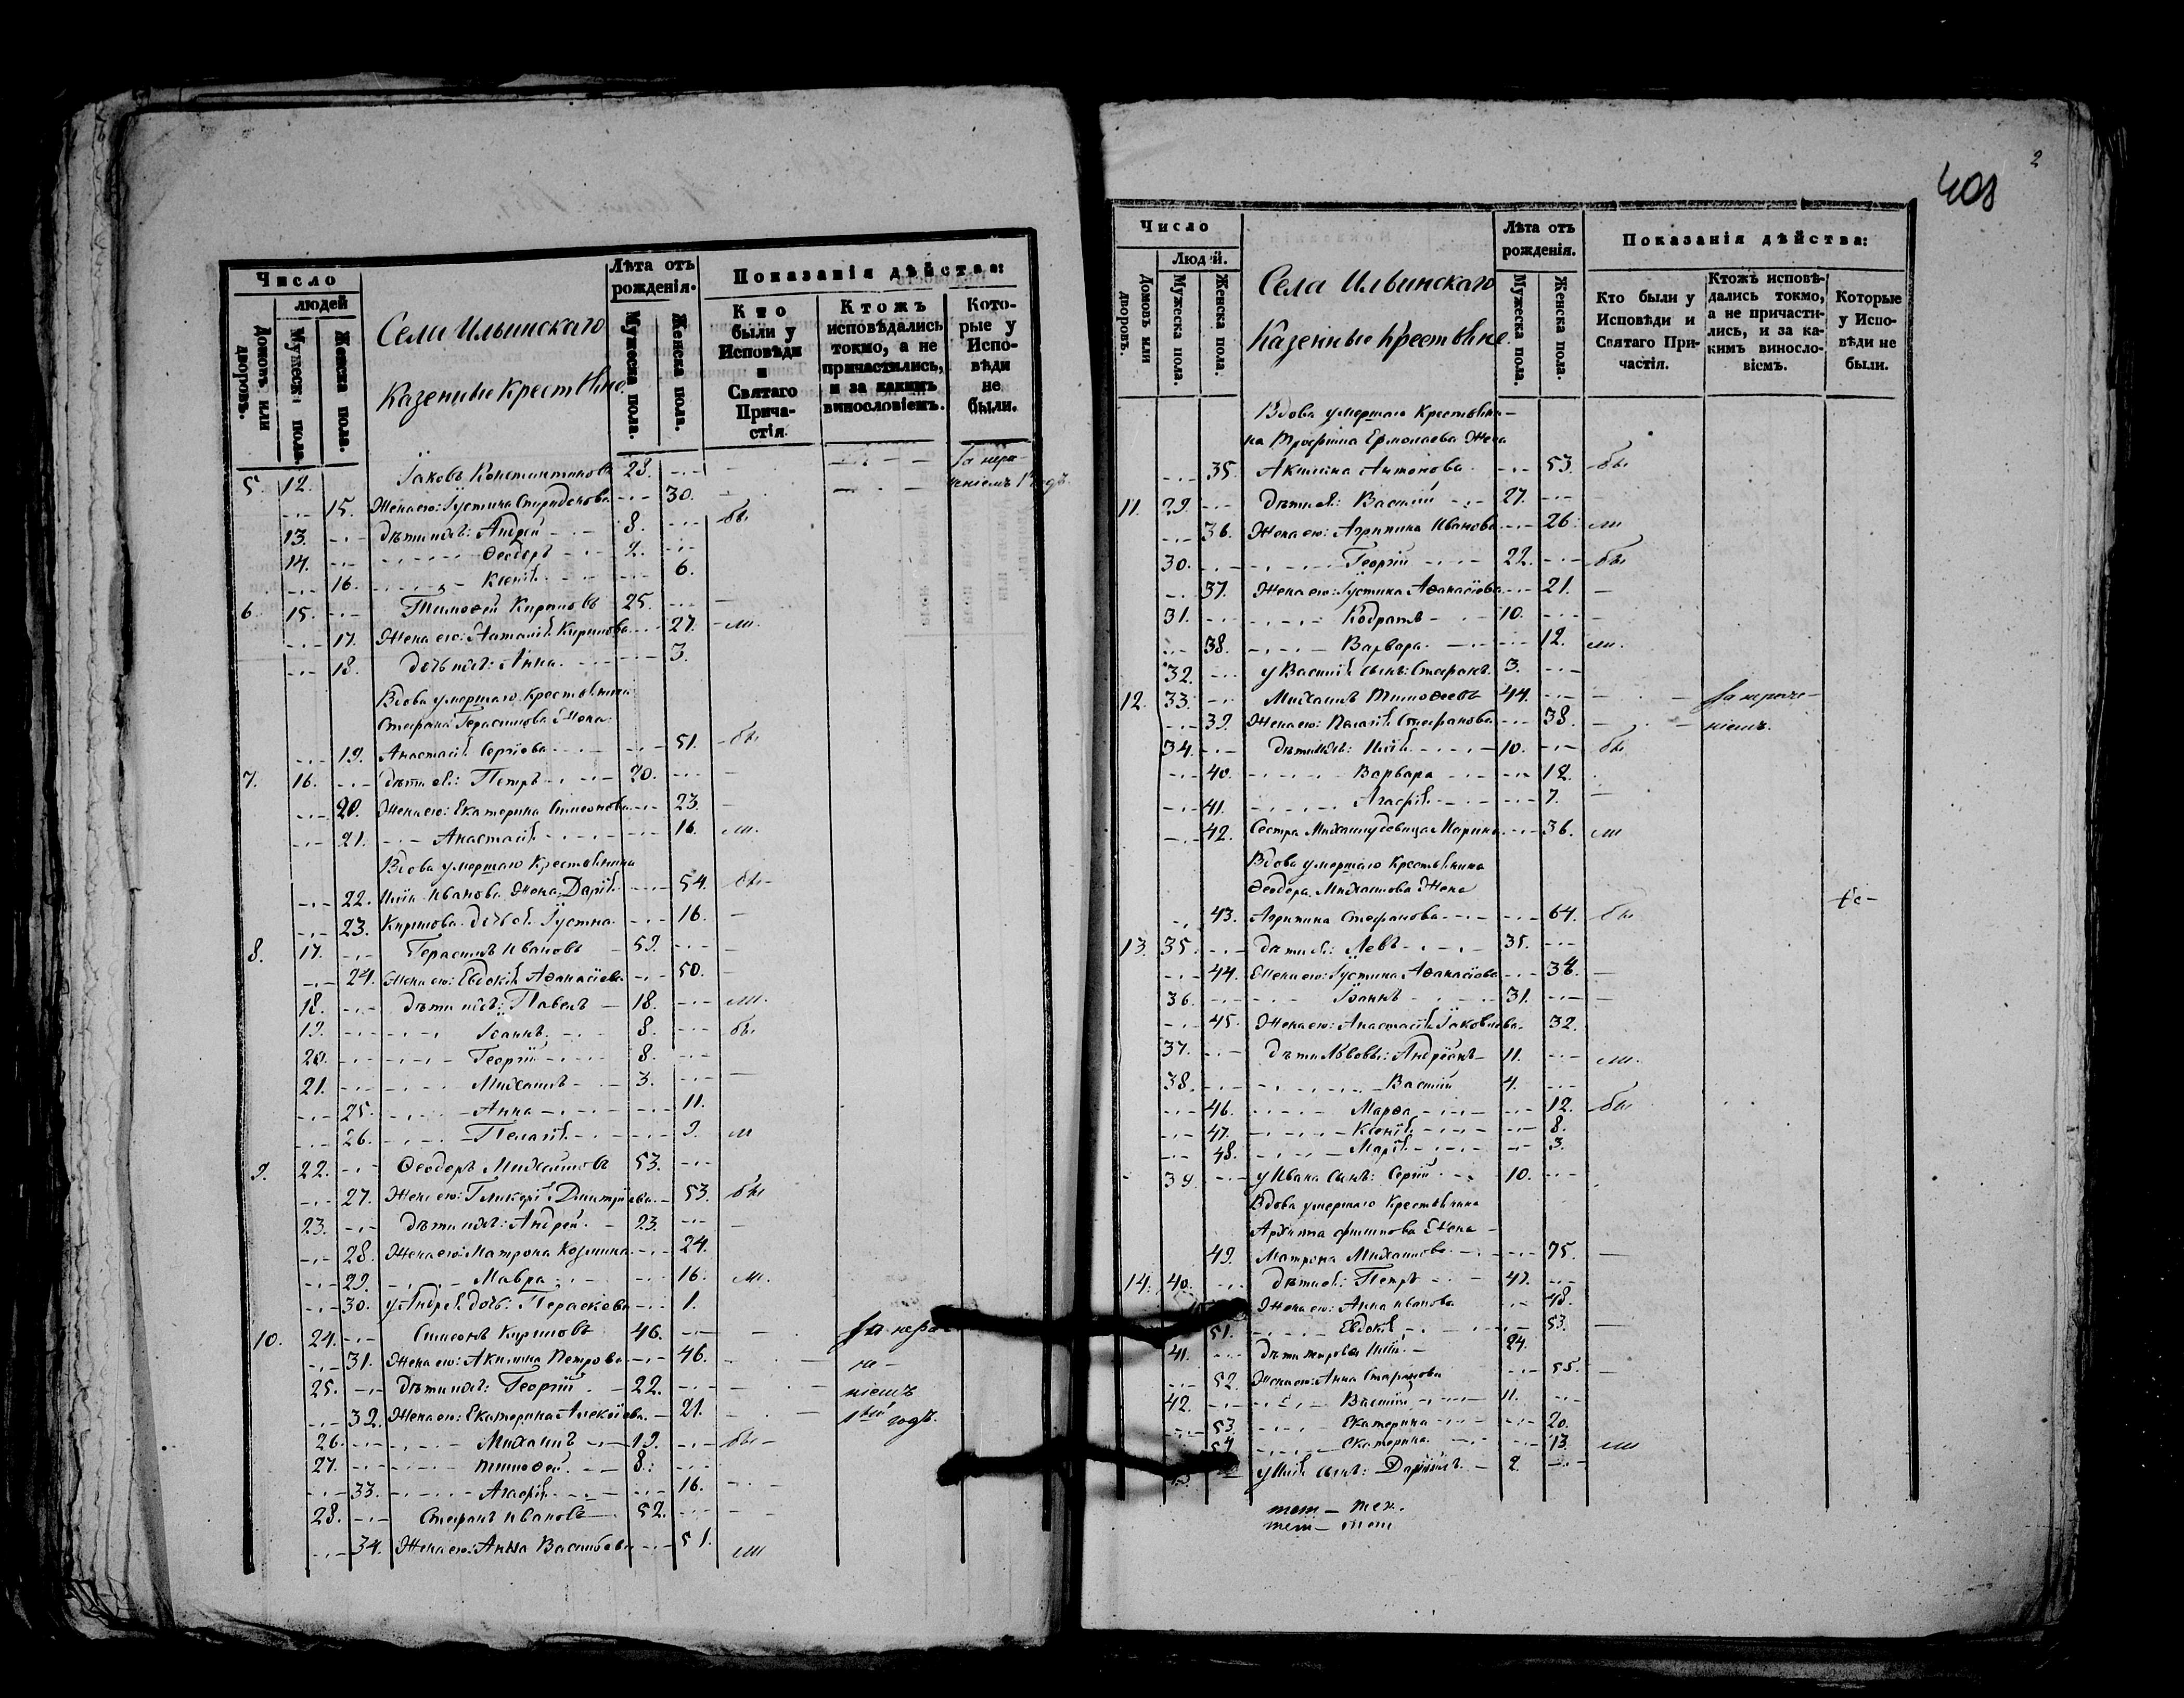 Число
людей
Домовъ или дворовъ.
Мужеска пола.
Женска пола.
Села Ильинскаго
Казенныѣ крестьяне
Лѣта отъ рожденія.
Мужеска пола.
Женска пола.
Показанія дѣйства:
Кто были у Исповѣди и Святаго Прича-стія
Ктожъ исповѣдались токмо, а не причастились, и за какимъ винословіемъ.
Кото-рые у Испо-вѣди не были.
5. 12. Іаковъ Константиновъ 28.
15. Жена его: Іустина Спиридонова 30.
13. дѣти ихъ: Андрей 8. бы
14. Ѳеодоръ 2.
16. Ксенія 6.
6. 15. Тимоѳей Кириловъ 25.
17. Жена его: Наталія Кирилова 27. ли.
18. дочь ихъ: Анна 3.
Вдова умершаго крестьянина
Стефана Герасимова Жена
19. Анастасія Сергіева 51. бы
7. 16. дѣти ея: Петръ 20.
20. Жена его: Екатерина Симеонова 23.
21. Анастасія 16. ли.
Вдова умершаго Крестьянина
22. Иліи Иванова Жена: Дарія 54. бы
23. Кирилова дочь Іустина 16.
8. 17. Герасимъ Ивановъ 59.
24. Жена его: Евдокія Аѳанасіева 50.
18. дѣти ихъ: Павелъ 18. ли.
19. Іоаннъ 8. бы
20. Георгій 8.
21. Михаилъ 3.
25. Анна 11.
26. Пелагія 9. ли
9. 22. Ѳеодоръ Михайловъ 53.
27. Жена его: Гликерія Дмитріева 53. бы
23. дѣти ихъ: Андрей 23.
28. Жена его: Матрона Козмина 24.
29. Мавра 16. ли.
30. у Андрея дочь: Параскова 1.
10. 24. Симеонъ Кириловъ 46.
31. Жена его: Акилина Петрова 46.
25. дѣти ихъ: Георгій 22. ніемъ
32. Жена его: Екатерина Алексіева 21. 1й годъ.
26. Михаилъ 19. бы
27. Тимоѳей 8.
33. Агафія 16.
28. Стефанъ Ивановъ 52.
34. Жена его: Анна Васильева 51. ли
2
408
Число
Людей.
Домовъ или дворовъ.
Мужеска пола.
Женска пола.
Села Ильинскаго
Казенныѣ Крестьяне
Лѣта отъ рожденія.
Мужеска пола.
Женска пола.
Показанія дѣйства:
Кто были у Исповѣди и Святаго При-частія.
Ктожъ исповѣ-дались токмо, а не причасти-лись, и за ка-кимъ виносло-віемъ.
Которые у Испо-вѣди не были.
Вдова умершаго Крестьяни-
на Трофима Ермолаева Жена
35. Акилина Антонова 53. бы
11. 29. дѣти ея: Василій 27.
36. Жена его: Агрипина Иванова 26. ли
30. Георгій 22. бы
37. Жена его: Іустина Аѳанасіева 21.
31. Кодратъ 10.
38. Варвара 12. ли.
32. у Василія сынъ: Стефанъ 3.
12. 33. Михаилъ Тимоѳеевъ 44. За нераче-
39. Жена его: Пелагія Стефанова 38. ніемъ.
34. дѣти ихъ: Илія 10. бы
40. Варвара 12.
41. Агафія 7.
42. Сестра Михаилу девица Марина 36. ли
Вдова умершаго Крестьянина
Ѳеодора Михаилова Жена
43. Агрипина Стефанова 64. бы
13. 35. дѣти ея: Левъ 35.
44. Жена его: Іустина Аѳанасіева 34.
36. Іоаннъ 31.
45. Жена его: Анастасія Іаковлева 32.
37. дѣти Львовы: Андріанъ 11. ли.
38. Василій 4.
46. Марѳа 12. бы
47. Ксенія 8.
48. Марія 3.
39. у Ивана сынъ: Сергій 10.
Вдова умершаго Крестьянина
Архипа Филипова Жена
49. Матрона Михаилова 75.
14. 40. дѣти ея: Петръ 47.
Жена его: Анна Иванова 48.
51. Евдокія 53.
41. дѣти Петровы Илія 24.
52. Жена его: Анна Стефанова 55.
42. Василій 11.
53. Екатерина 20.
54. Екатерина 13. ли
у Иліи сынъ: Даніилъ 2.